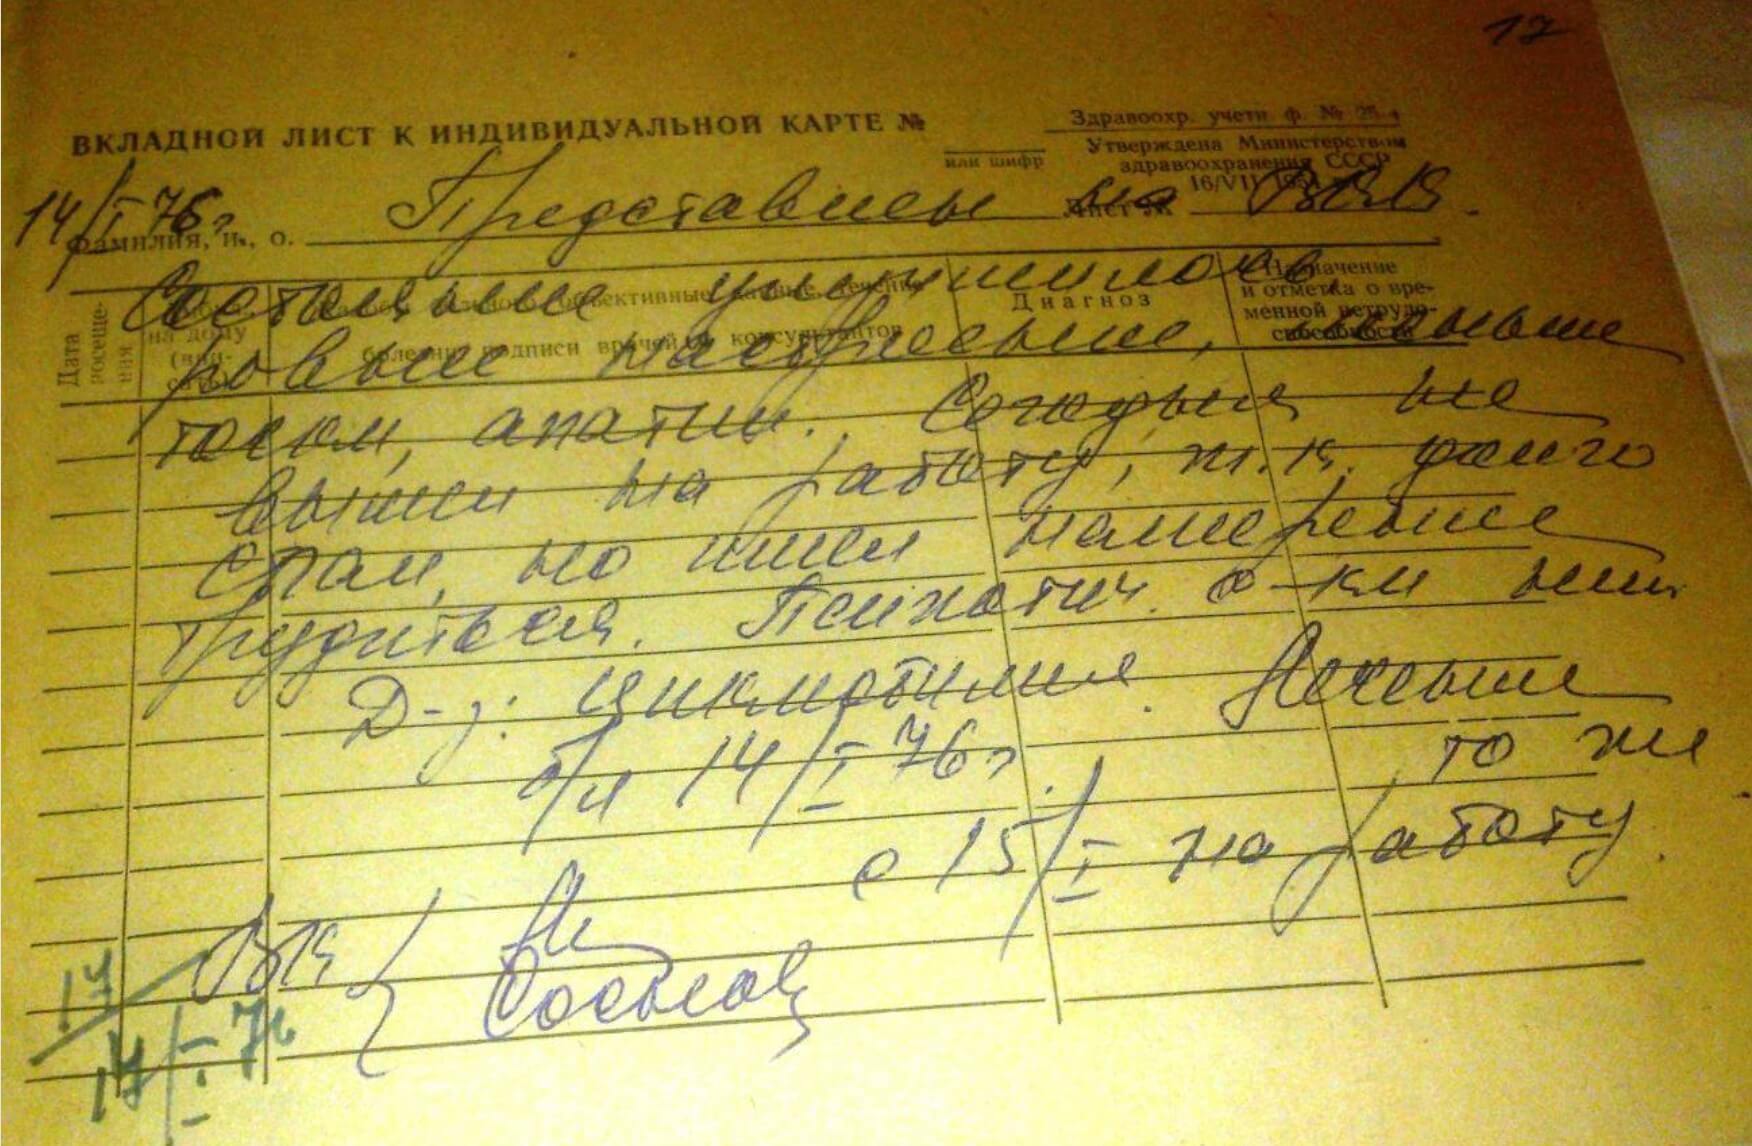 17
ВКЛАДНОЙ ЛИСТ К ИНДИВИДУАЛЬНОЙ КАРТЕ №
или шифр
Здравоохр. учетн. ф. № 25
Утверждена Министерством
здравоохранения СССР
16/VII 195
14/I 76г. Представлен на ВКК.
Фамилия, и., о.
Лист №
Дата посеще-
ния
на дому
объективные
болезни подписи врачей и консультантов
Диагноз
Назначение
и отметка о вре-
менной нетрудо-
способности
Состояние улучшилось,
ровнее настроение, меньше
тоски, апатии. Сегодня не
вышел на работу, т.к. долго
спал, но имел намерение
трудиться. Психотич. с-км нет.
Д-з: циклотимия. Лечение
то же
б/л 14/I 76г.
с 15/I на работу.
ВКК {
14/I 76